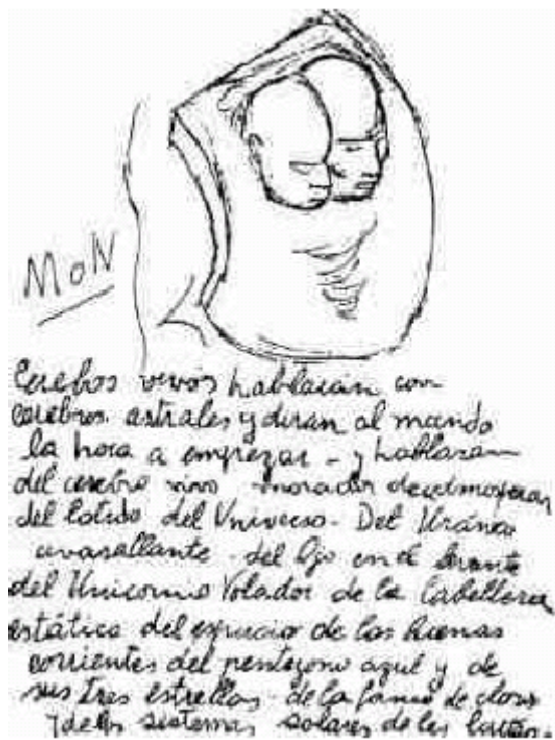 MON
Cerebros vivos hablarán con
cerebros astrales y dirán al mundo
la hora a empezar - y hablarán
del cerebro vivo morador
del latido del Universo - Del Uráneo
avasallante del en el
del Unicornio Volador de la Cabellera
estática del espacio de las buenas
corrientes del pentágono azul y de
sus tres estrellas - de la de
y de los sistemas solares de los